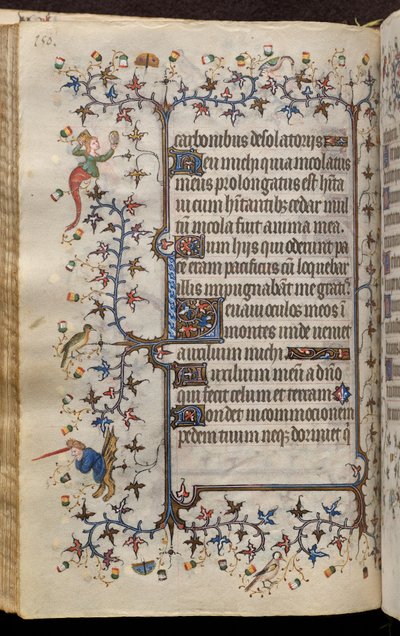 150.
carbonibus desolatorijs
Heu michi quia incolatus
meus prolongatus est hīta
ui cum hītantibz cedar mul
tū incola fuit anima mea.
Cum hijs qui oderunt pa
ce eram pacificus cū loquebar
illis impugnabāt me gratis.
Leuaui oculos meos ī
montes unde ueniet
auxilium michi
Auxilium meū a dño
qui fecit celum et terram
Non det in commocionem
pedem tuum neqz dormitet q̄